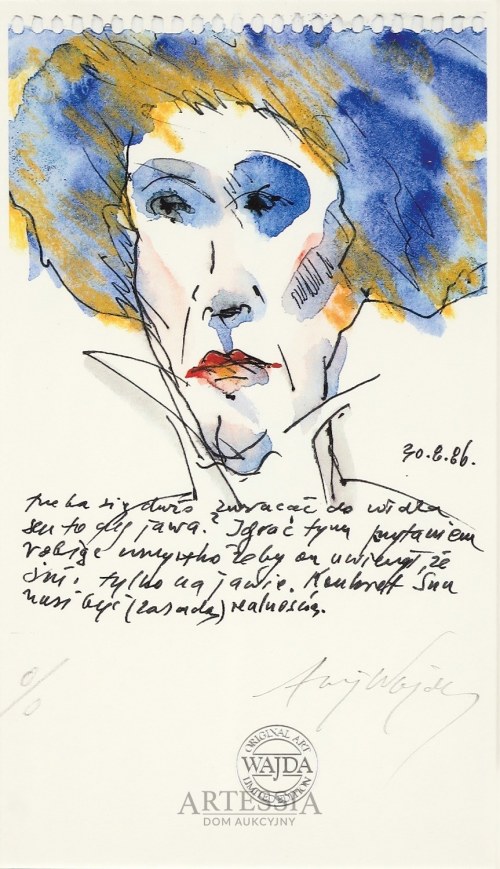 30.6.86.
trzeba się dużo zwracać do widza
sen to czy jawa? Igrać tym pytaniem
robiąc wszystko żeby on uwierzył, że
śni, tylko na jawie. Konkret Snu
musi być (zasadą) realnością.
0/0
ORIGINAL ART
WAJDA
LIMITED EDITION
ARTESSIA
DOM AUKCYJNY